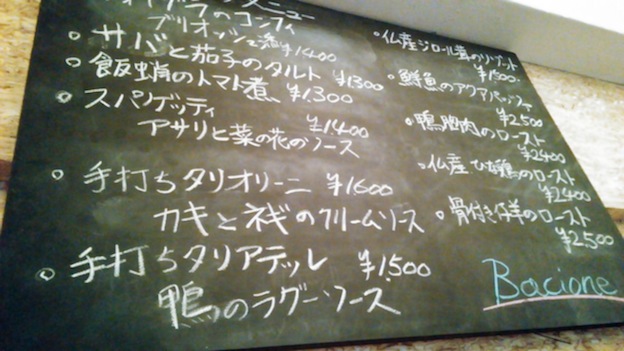 メニュー
フォアグラのコンフィ
ブリオッシュ添え ¥1400
サバと茄子のタルト ¥1300
飯蛸のトマト煮 ¥1300
スパゲッティ ¥1400
アサリと菜の花のソース
手打ちタリオリーニ ¥1600
カキとネギのクリームソース
手打ちタリアテッレ ¥1,500
鴨のラグーソース
仏産ジロール茸のリゾット
¥1,500
鮮魚のアクアパッツァ
¥2,500
鴨胸肉のロースト
¥2400
仏産ひな鶏のロースト
¥2400
骨付き仔羊のロースト
¥2,500
Bacione